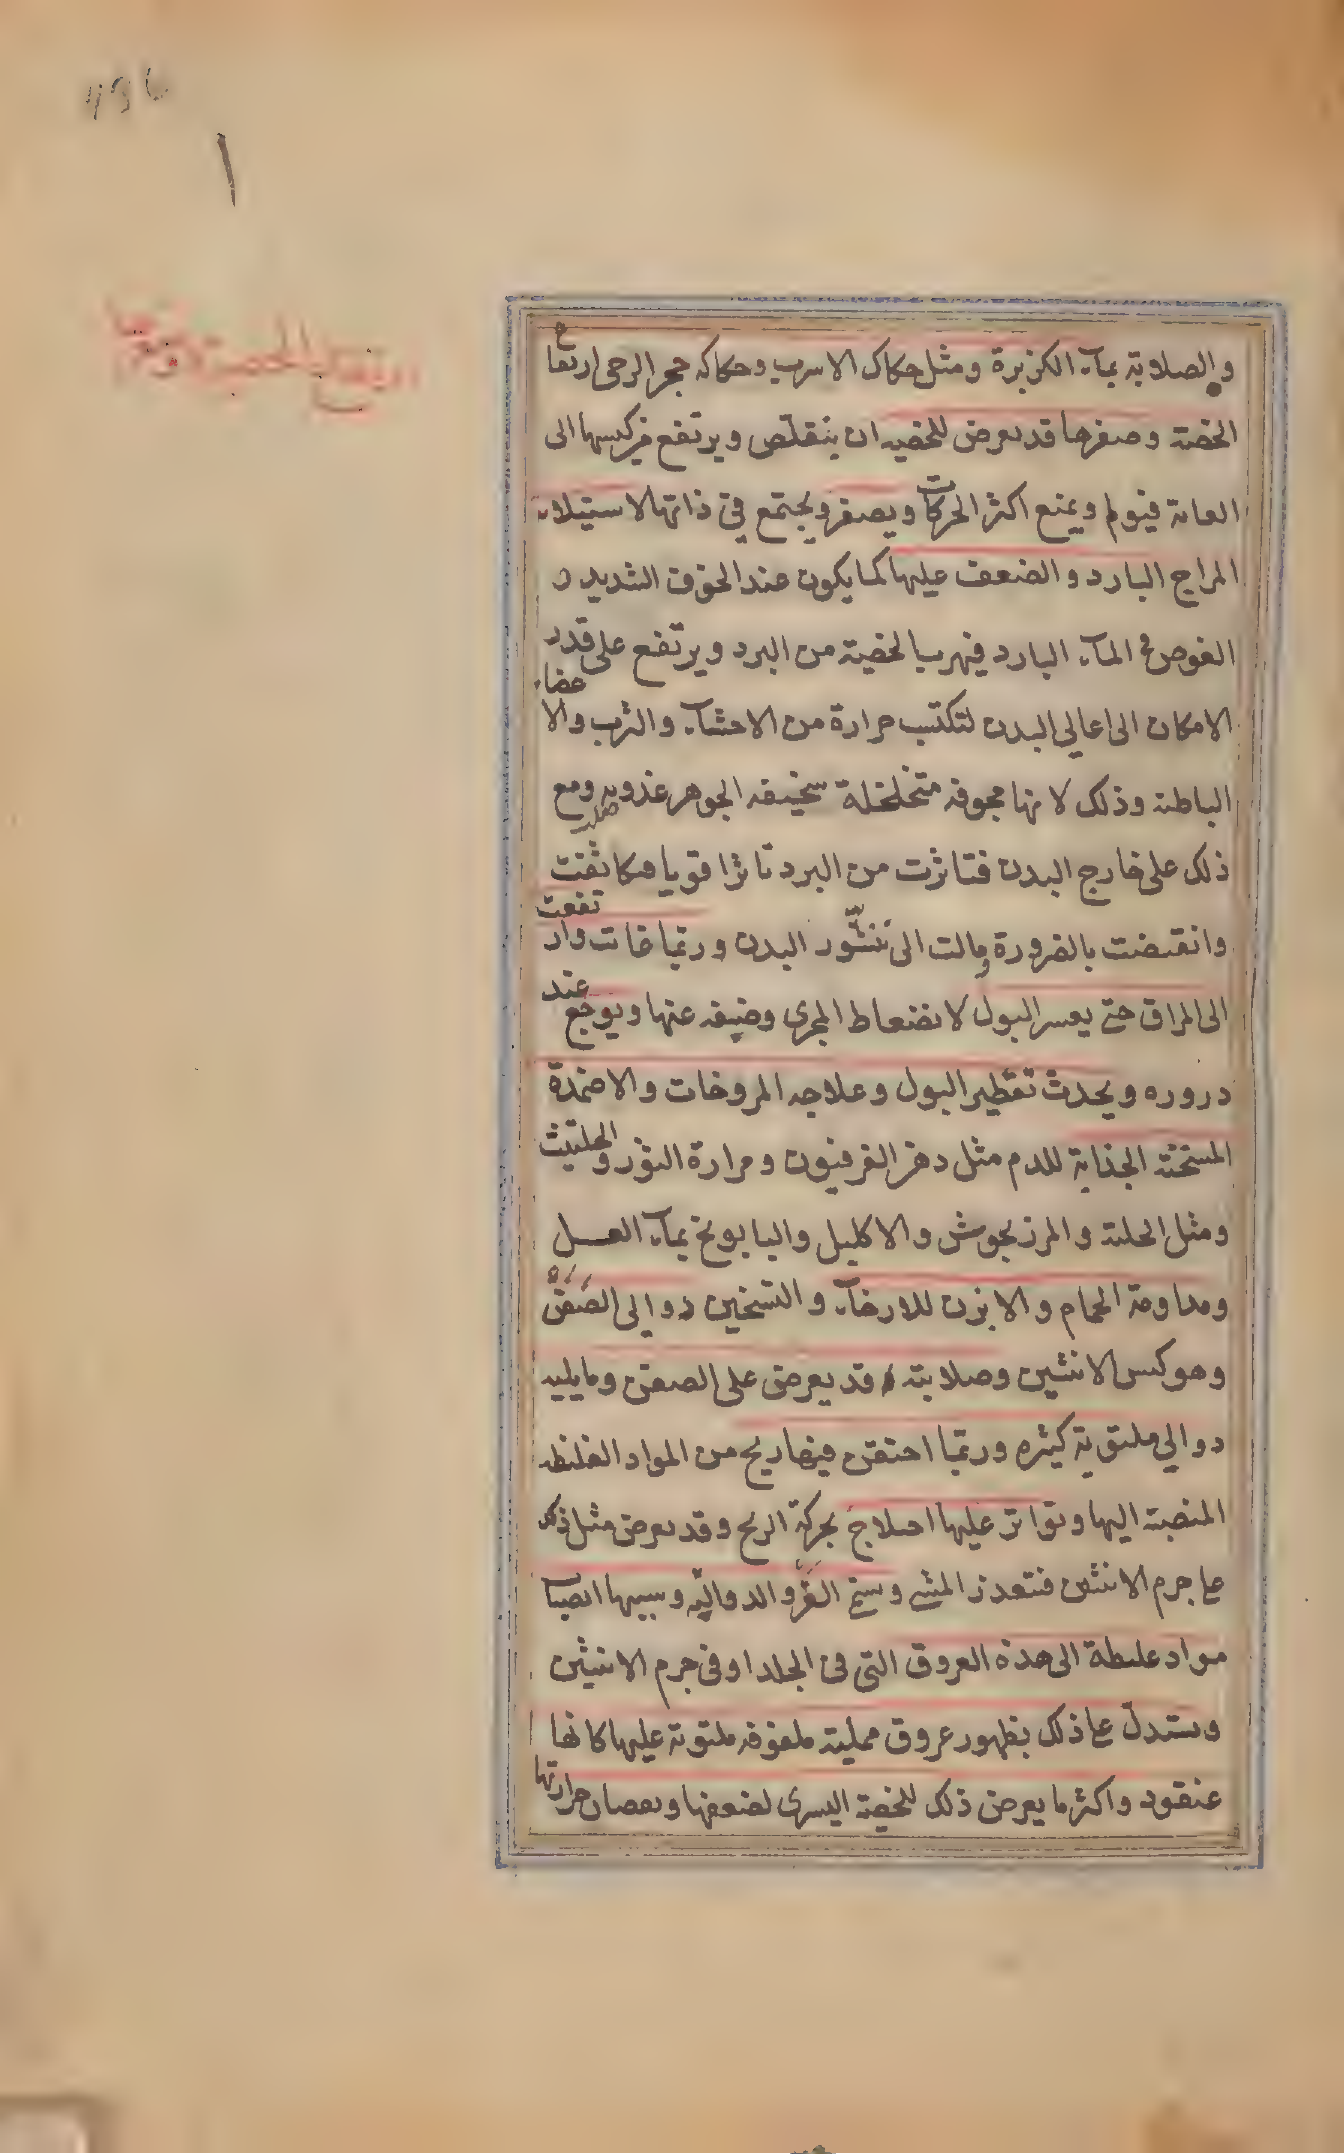 ارتفاع الخصية وصغرها
والصلابة بمآء الكزبرة ومثل حكاك الاسرب وحكاكه حجر الرحى ارتفاع
الخصية وصغرها قد يعرض للخصية ان يتقلّص ويرتفع من كيسها الى
العانة فيولم ويمنع اكثر الحركات ويصغر ويجتمع في ذاتها لاستيلاء
المزاج البارد والضعف عليها كما يكون عند الخوف الشديد و
الغوص في المآء البارد فيهرب الخصية من البرد ويرتفع على قدر
الامكان الى اعالى البدن لتكتسب حرارة من الاحشآء والثرب والاعضاء
الباطنة وذلك لانها مجوفه متخلخلة سخيفه الجوهر غدويه ومع
ذلك على خارج البدن فتاثرت من البرد تاثرا قويا فتكاثفت
وانقبضت بالضرورة ومالت الى البدن وربما غابت وارتفعت
الى المراق حتى يعسر البول لانضغاط المجرى وضيقه عنها ويوجع عند
دروره ويحدث تقطير البول وعلاجه المروخات والاضمدة
المسخنة الجذابة للدم مثل دهن الفرفيون ومرارة الثور والحلتيث
ومثل الحلبة والمرزنجوش والاكليل والبابونج بمآء العسل
ومداومة الحمام والابزن للارخآء والتسخين دوالى الصفن
وهو كيس الانثيين وصلابته قد يعرض على الصفن وما يليه
دوالي ملتوية كثيره وربما احتقن فيها ريح من المواد الغليظه
المنصبة اليها وتواتر عليها اختلاج بحركة الريح وقد يعرض مثل ذلك
على جرم الانثيين فتعذر المشي وسمّى القرو الدواليّه وسببها انصباب
مواد غليظة الى هذه العروق التي في الجلد او في جرم الانثيين
ويستدلّ على ذلك بظهور عروق ممتلية ملفوفه ملتوية عليها كانها
عنقود واكثر ما يعرض ذلك للخصية اليسرى لضعفها ونقصان حرارتها